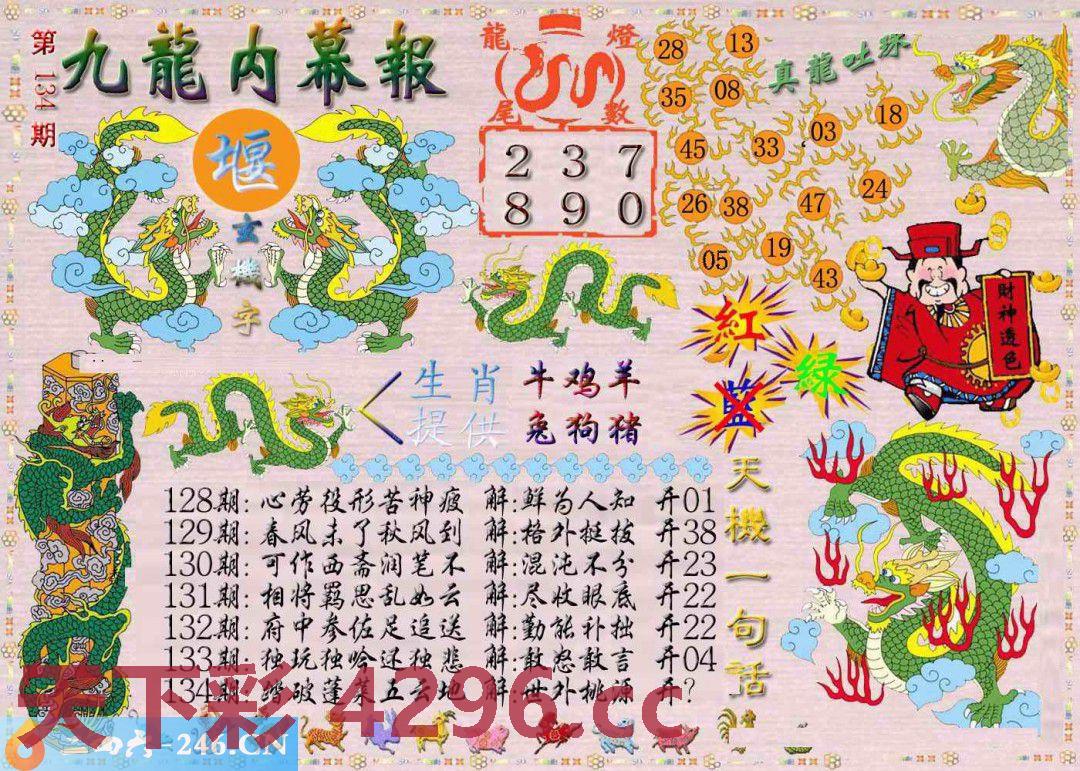 第134期
九龍内幕報
堰
玄機字
龍燈
尾數
2 3 7
8 9 0
真龍吐珠
28 13
35 08
45 33 03 18
26 38 47 24
05 19 43
財神透色
紅
绿
藍
生肖 牛鸡羊
提供 兔狗猪
天機一句話
128期: 心劳役形苦神疲 解:鲜为人知 开01
129期: 春风未了秋风到 解:格外挺拔 开38
130期: 可作西斋润笔不 解:混沌不分 开23
131期: 相将羁思乱如云 解:尽收眼底 开22
132期: 府中参佐足追送 解:勤能补拙 开22
133期: 独玩独吟还独悲 解:敢怒敢言 开04
134期: 踏破蓬莱五云地 解:世外桃源 开?
天下彩 4296.cc
246.CN